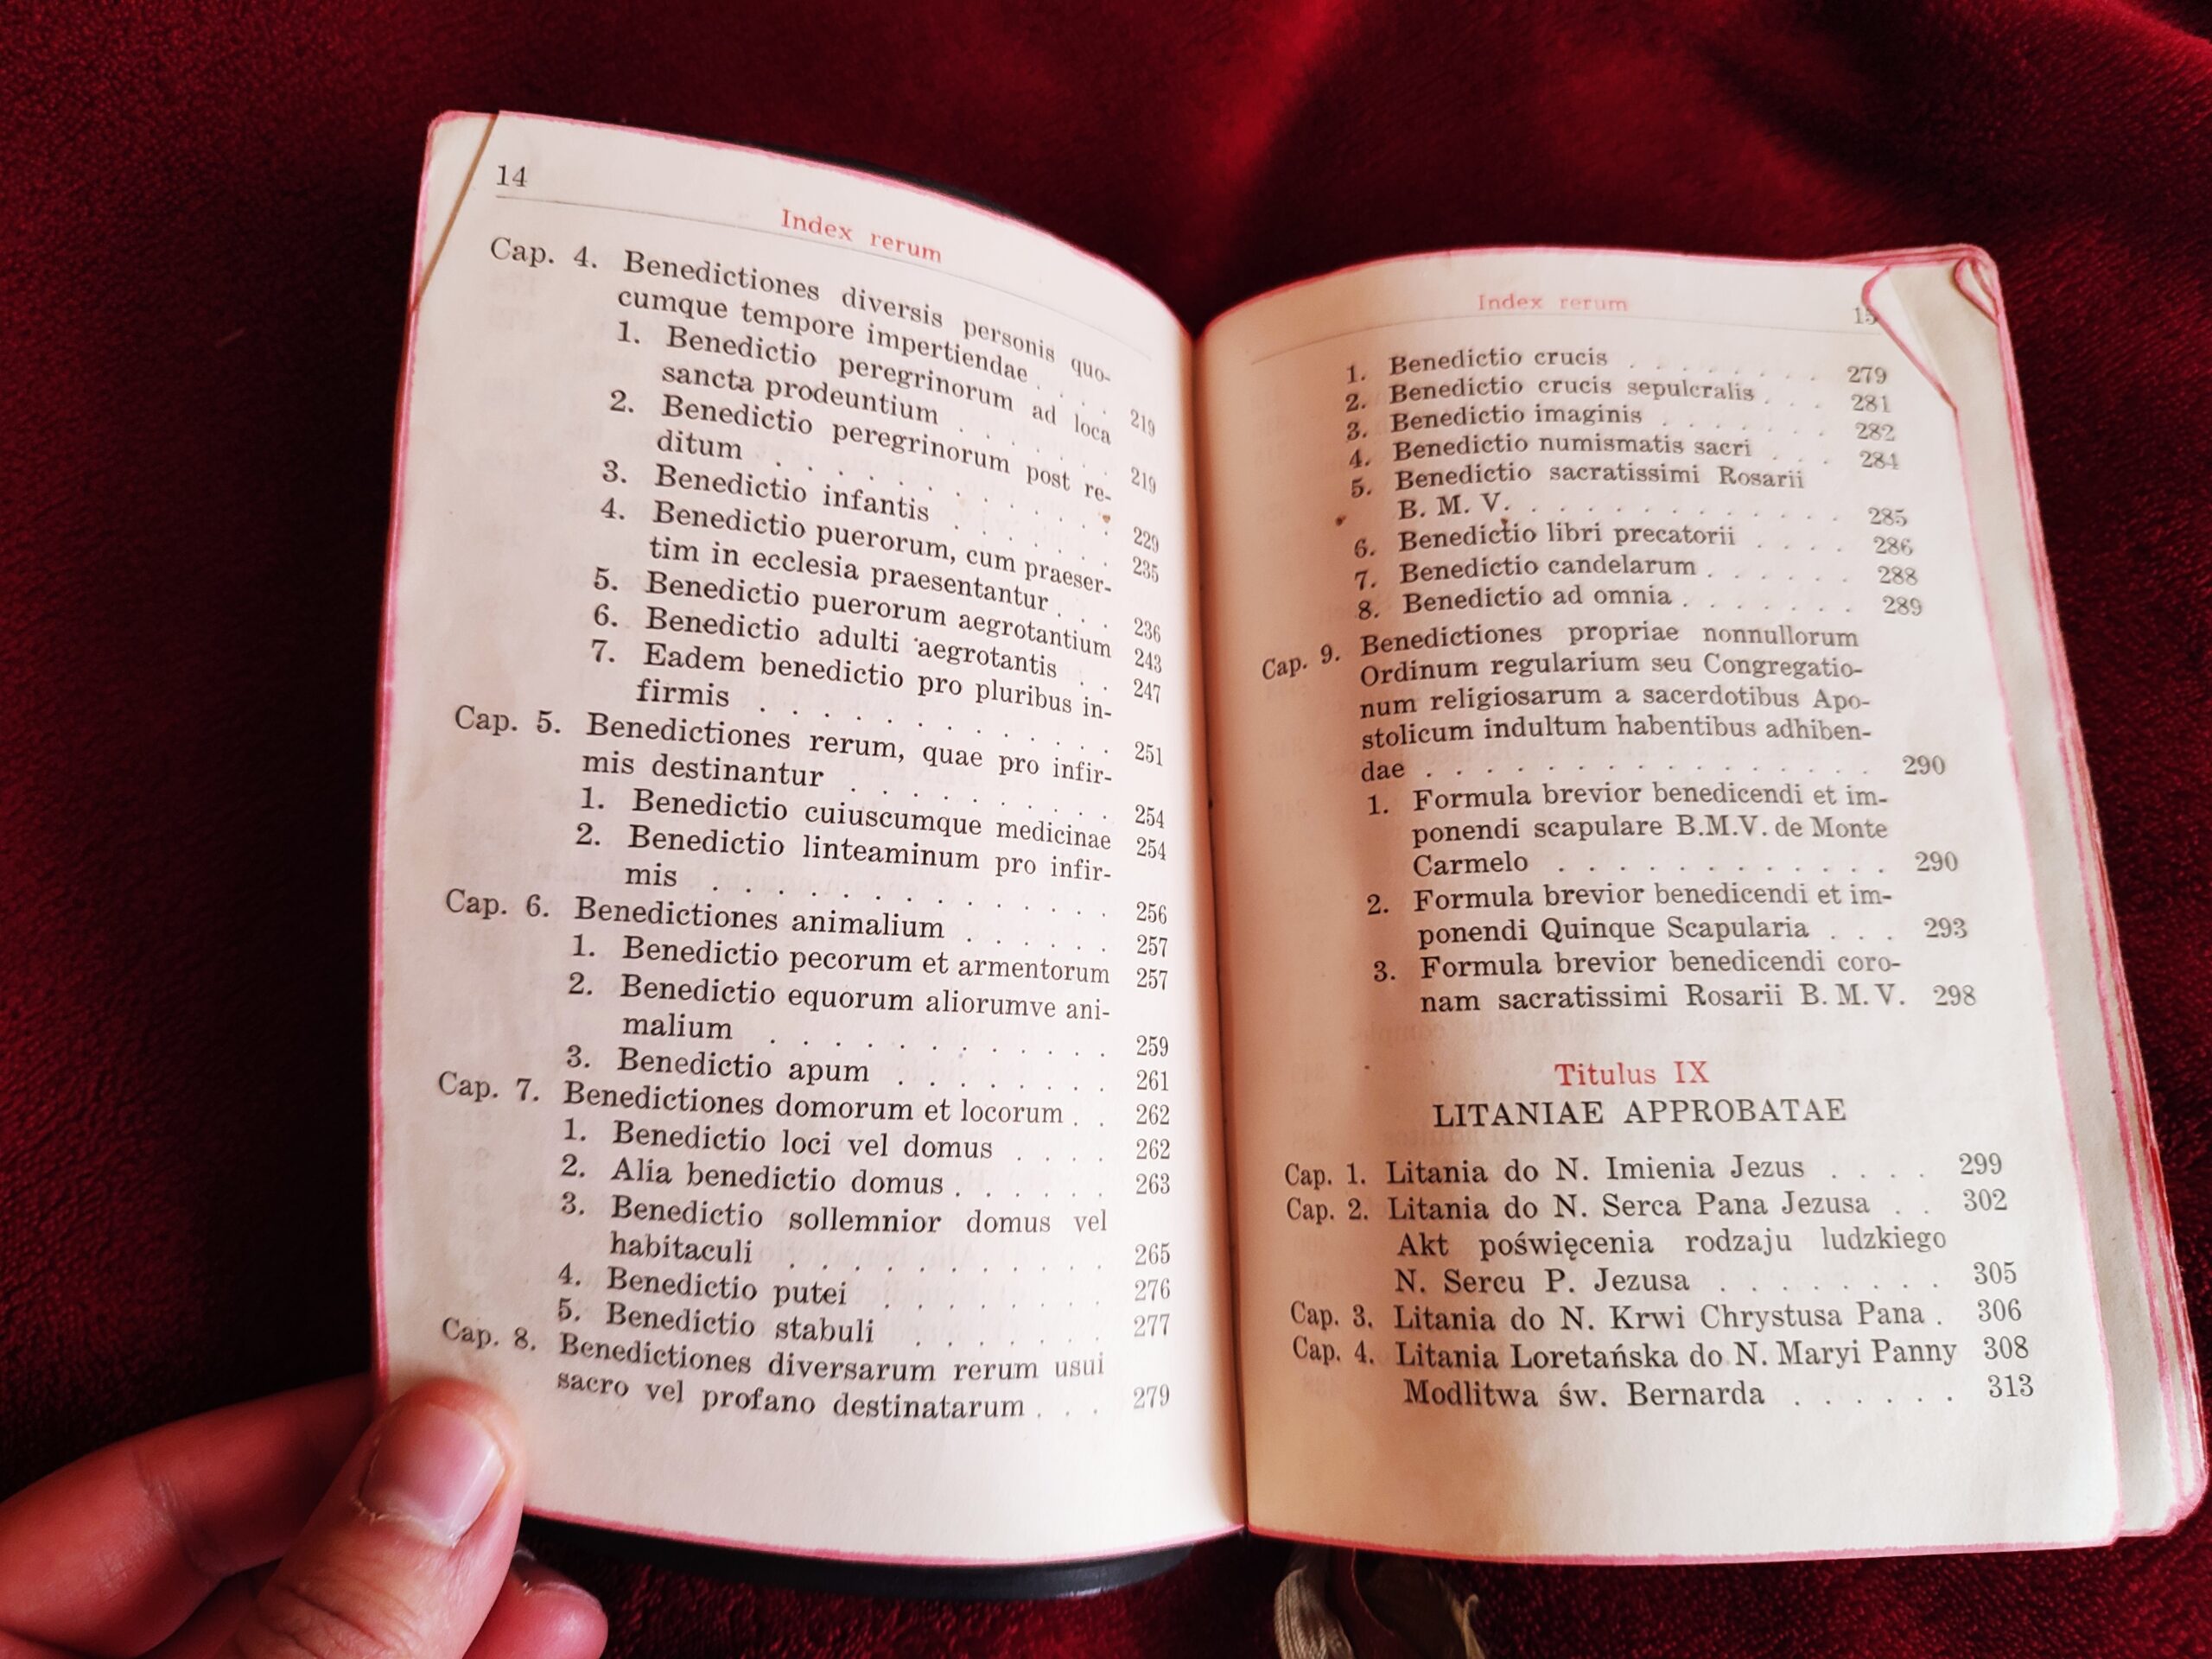 14
Index rerum
Cap. 4. Benedictiones diversis personis quo-
cumque tempore impertiendae . . . 219
1. Benedictio peregrinorum ad loca
sancta prodeuntium . . . . . . 219
2. Benedictio peregrinorum post re-
ditum . . . . . . . . . . . 229
3. Benedictio infantis . . . . . . 235
4. Benedictio puerorum, cum praeser-
tim in ecclesia praesentantur . . . 236
5. Benedictio puerorum aegrotantium 243
6. Benedictio adulti aegrotantis . . 247
7. Eadem benedictio pro pluribus in-
firmis . . . . . . . . . . . . 251
Cap. 5. Benedictiones rerum, quae pro infir-
mis destinantur . . . . . . . . . 254
1. Benedictio cuiuscumque medicinae 254
2. Benedictio linteaminum pro infir-
mis . . . . . . . . . . . . . 256
Cap. 6. Benedictiones animalium . . . . . . 257
1. Benedictio pecorum et armentorum 257
2. Benedictio equorum aliorumve ani-
malium . . . . . . . . . . . 259
3. Benedictio apum . . . . . . . 261
Cap. 7. Benedictiones domorum et locorum . . 262
1. Benedictio loci vel domus . . . . 262
2. Alia benedictio domus . . . . . . 263
3. Benedictio sollemnior domus vel
habitaculi . . . . . . . . . . 265
4. Benedictio putei . . . . . . . . 276
5. Benedictio stabuli . . . . . . . 277
Cap. 8. Benedictiones diversarum rerum usui
sacro vel profano destinatarum . . . 279
Index rerum
15
1. Benedictio crucis . . . . . . . 279
2. Benedictio crucis sepulcralis . . . 281
3. Benedictio imaginis . . . . . . 282
4. Benedictio numismatis sacri . . . 284
5. Benedictio sacratissimi Rosarii
B. M. V. . . . . . . . . . . . 285
6. Benedictio libri precatorii . . . . 286
7. Benedictio candelarum . . . . . . 288
8. Benedictio ad omnia . . . . . . . 289
Cap. 9. Benedictiones propriae nonnullorum
Ordinum regularium seu Congregatio-
num religiosarum a sacerdotibus Apo-
stolicum indultum habentibus adhiben-
dae . . . . . . . . . . . . . . . 290
1. Formula brevior benedicendi et im-
ponendi scapulare B.M.V. de Monte
Carmelo . . . . . . . . . . . 290
2. Formula brevior benedicendi et im-
ponendi Quinque Scapularia . . . 293
3. Formula brevior benedicendi coro-
nam sacratissimi Rosarii B. M. V. 298
Titulus IX
LITANIAE APPROBATAE
Cap. 1. Litania do N. Imienia Jezus . . . . 299
Cap. 2. Litania do N. Serca Pana Jezusa . . 302
Akt poświęcenia rodzaju ludzkiego
N. Sercu P. Jezusa . . . . . . . . 305
Cap. 3. Litania do N. Krwi Chrystusa Pana . 306
Cap. 4. Litania Loretańska do N. Maryi Panny 308
Modlitwa św. Bernarda . . . . . . 313